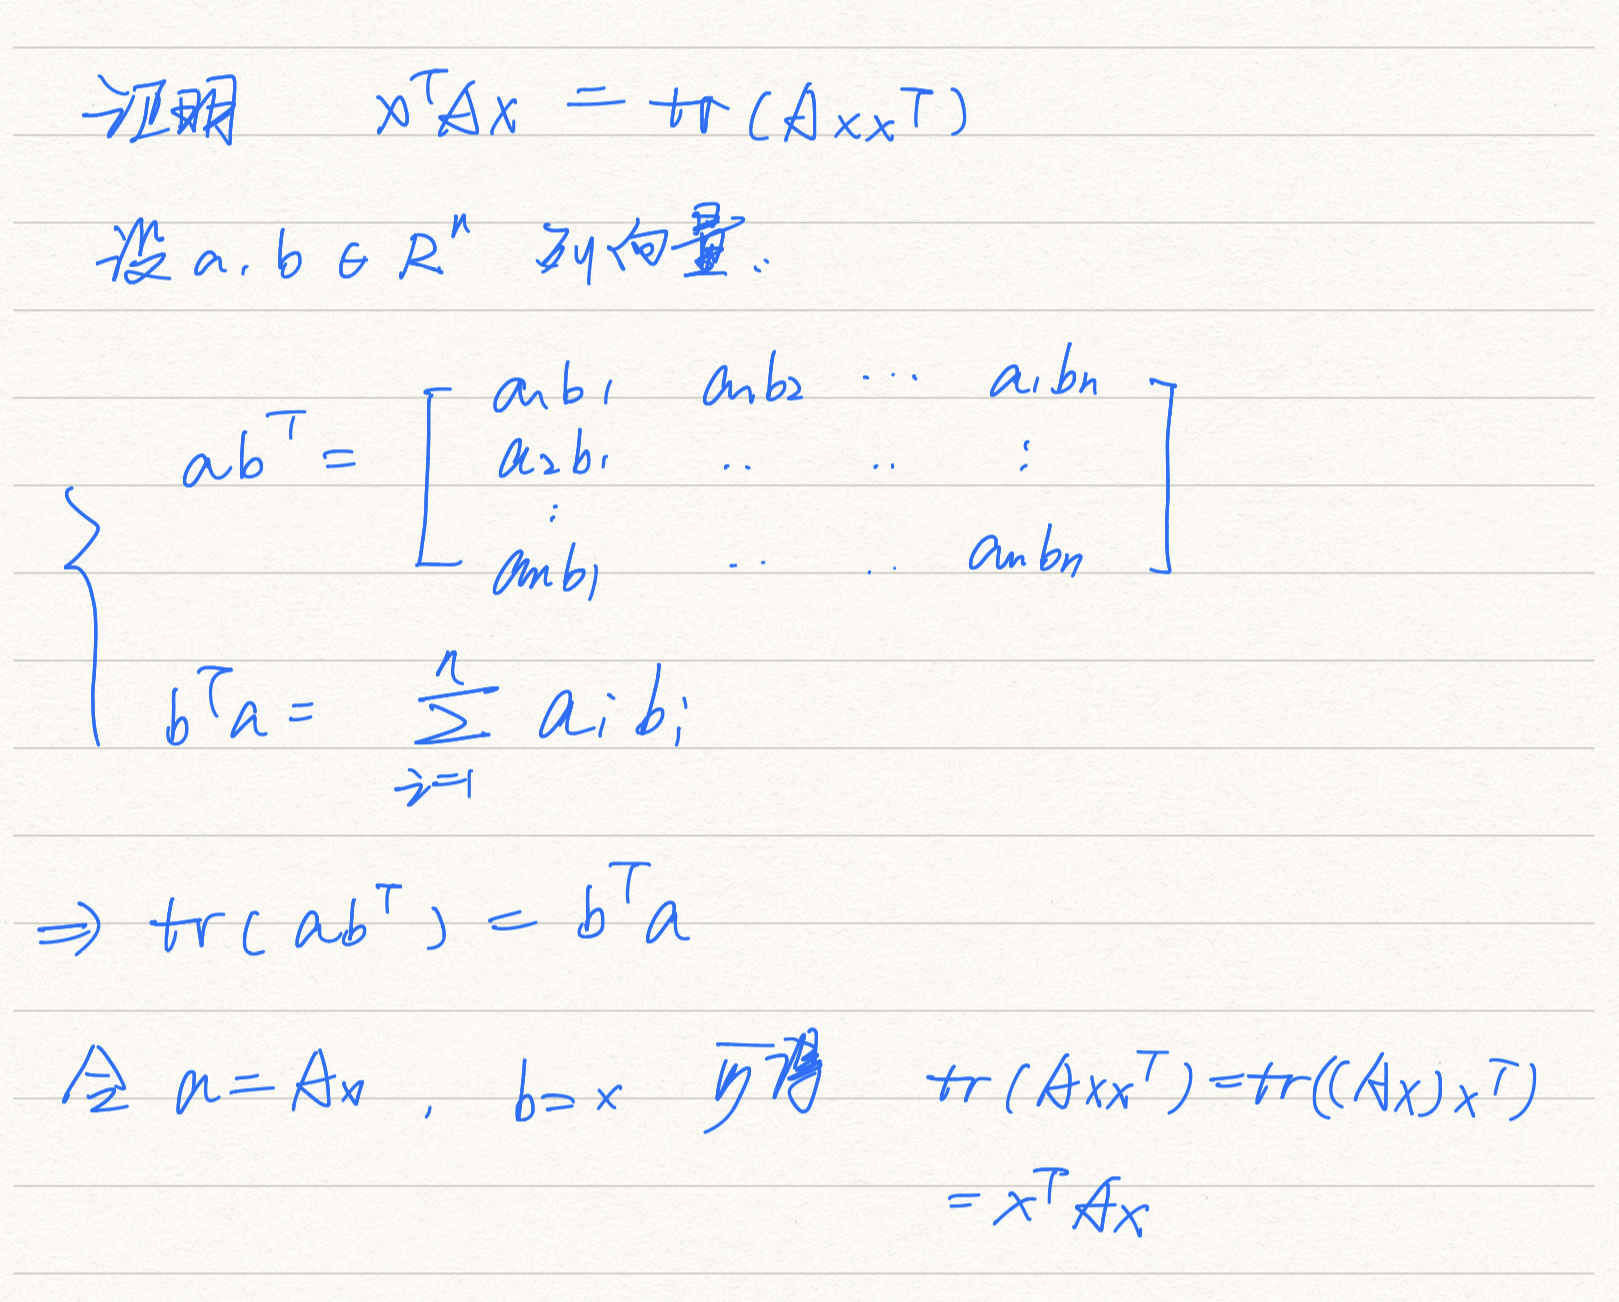 证明 xᵀAx = tr(Axxᵀ)
设 a, b ∈ Rⁿ 列向量.
abᵀ = [ a₁b₁ a₁b₂ ⋯ a₁bₙ
a₂b₁ ‥ ‥ ⋮
⋮
aₙb₁ ‥ ‥ aₙbₙ ]
bᵀa = ∑ⁿᵢ₌₁ aᵢbᵢ
⇒ tr(abᵀ) = bᵀa
令 a = Ax, b = x 可得 tr(Axxᵀ) = tr((Ax)xᵀ)
= xᵀAx